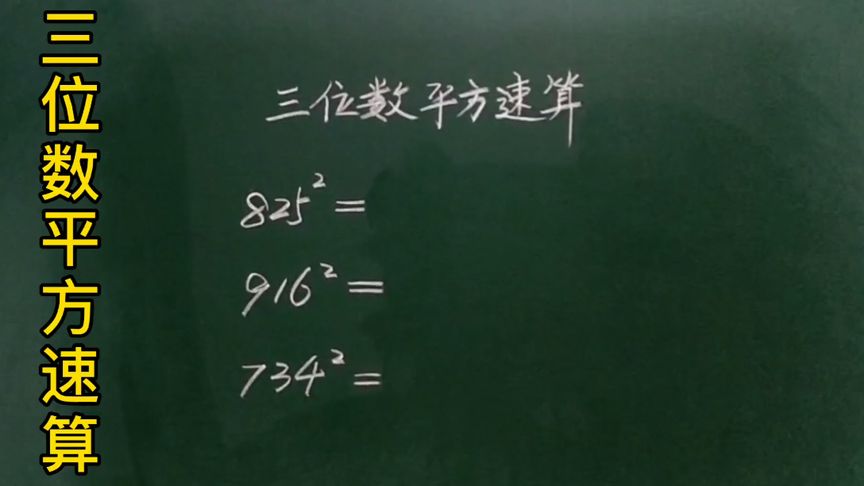 三位数平方速算
三位数平方速算
825²=
916²=
734²=